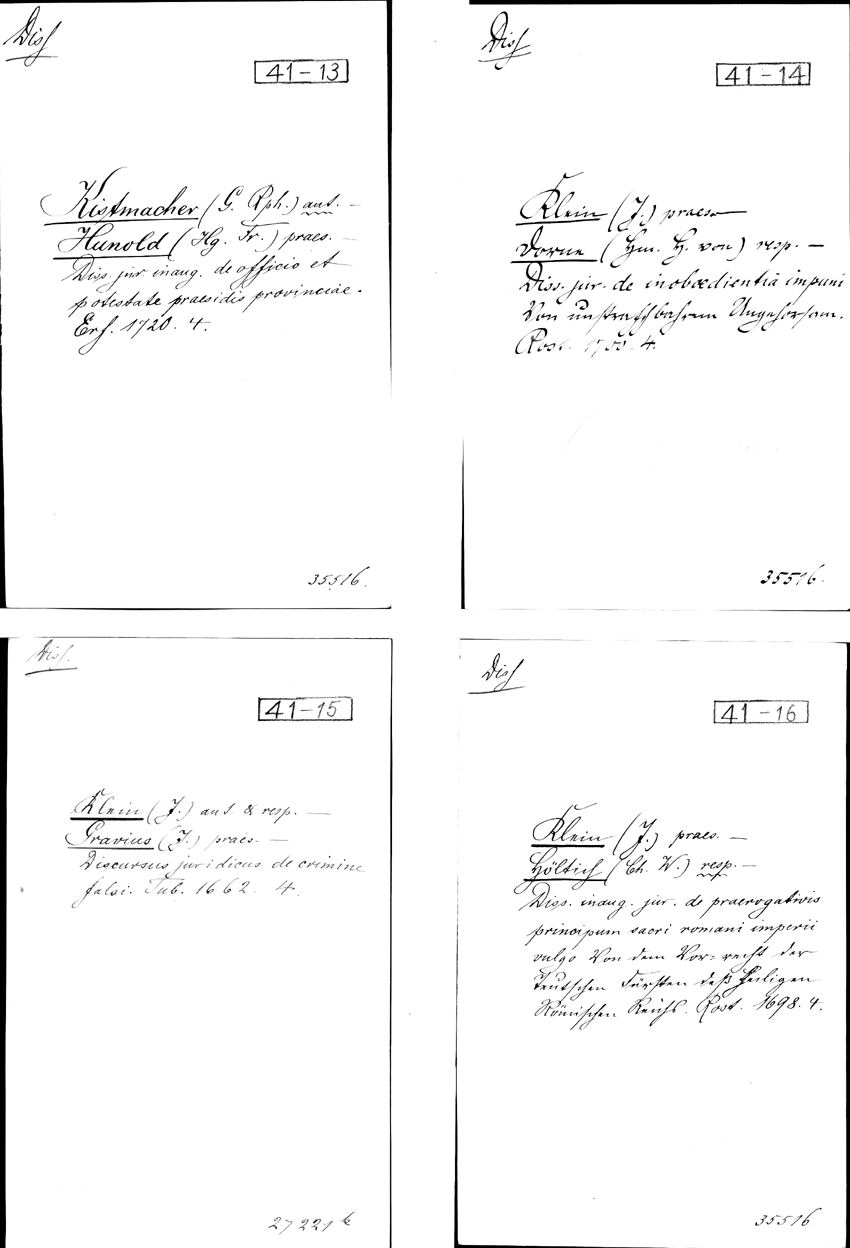 Diss
41-13
Kistmacher (G. Rph.) aut. —
Hunold (Hg. Fr.) praes. —
Diss. jur. inaug. de officio et
potestate praesidis provinciae.
Erf. 1720. 4.
35516.
Diss
41-14
Klein (J.) praes. —
Dorne (Hm. H. von) resp. —
Diss. jur. de inobœdientiâ impuni
Von unstraffbahrem Ungehorsam.
Rost. 1700. 4.
35516.
Diss.
41-15
Klein (J.) aut. & resp. —
Gravius (J.) praes. —
Discursus juridicus de crimine
falsi. Tub. 1662. 4.
27221
Diss
41-16
Klein (J.) praes. —
Höltich (Ch. W.) resp. —
Diss. inaug. jur. de praerogativis
principum sacri romani imperii
vulgo Von dem Vor-recht der
Teutschen Fürsten deß Heiligen
Römischen Reichs. Rost. 1698. 4.
35516